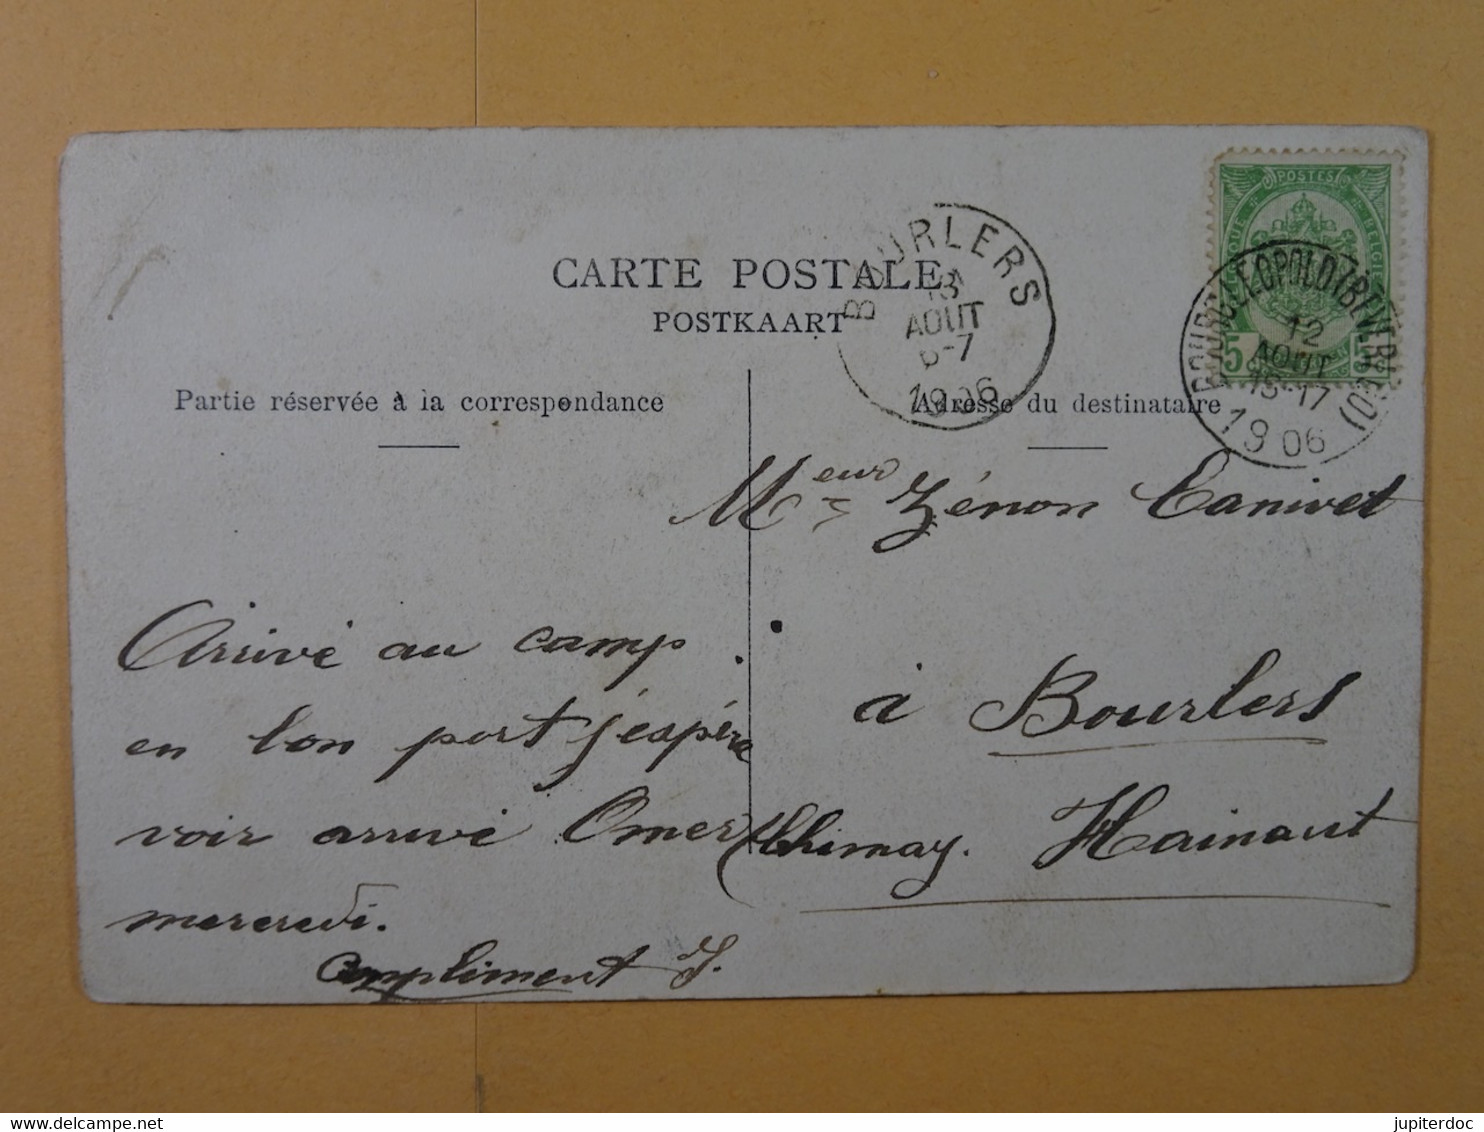 CARTE POSTALE
POSTKAART
Partie réservée à la correspondance
Adresse du destinataire
BOURLERS
13
AOUT
6-7
1906
POSTES
BELGIQUE
5
BOURG-LEOPOLD (BEVERLOO)
12
AOUT
1906
Arrivé au camp
en bon port j'espére
voir arrivé Omer
mercredi.
Compliment J.
Meur Zénon Canivet
à Bourlers
(Chimay. Hainaut
jupiterdoc
www.delcampe.net